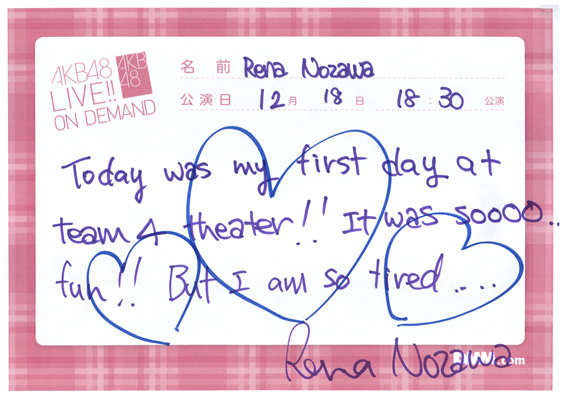 AKB48
AKB
48
LIVE!!
ON DEMAND
名前 Rena Nozawa
公演日 12月 18日 18:30 公演
Today was my first day at
team 4 theater!! It was soooo..
fun!! But I am so tired....
Rena Nozawa
.com